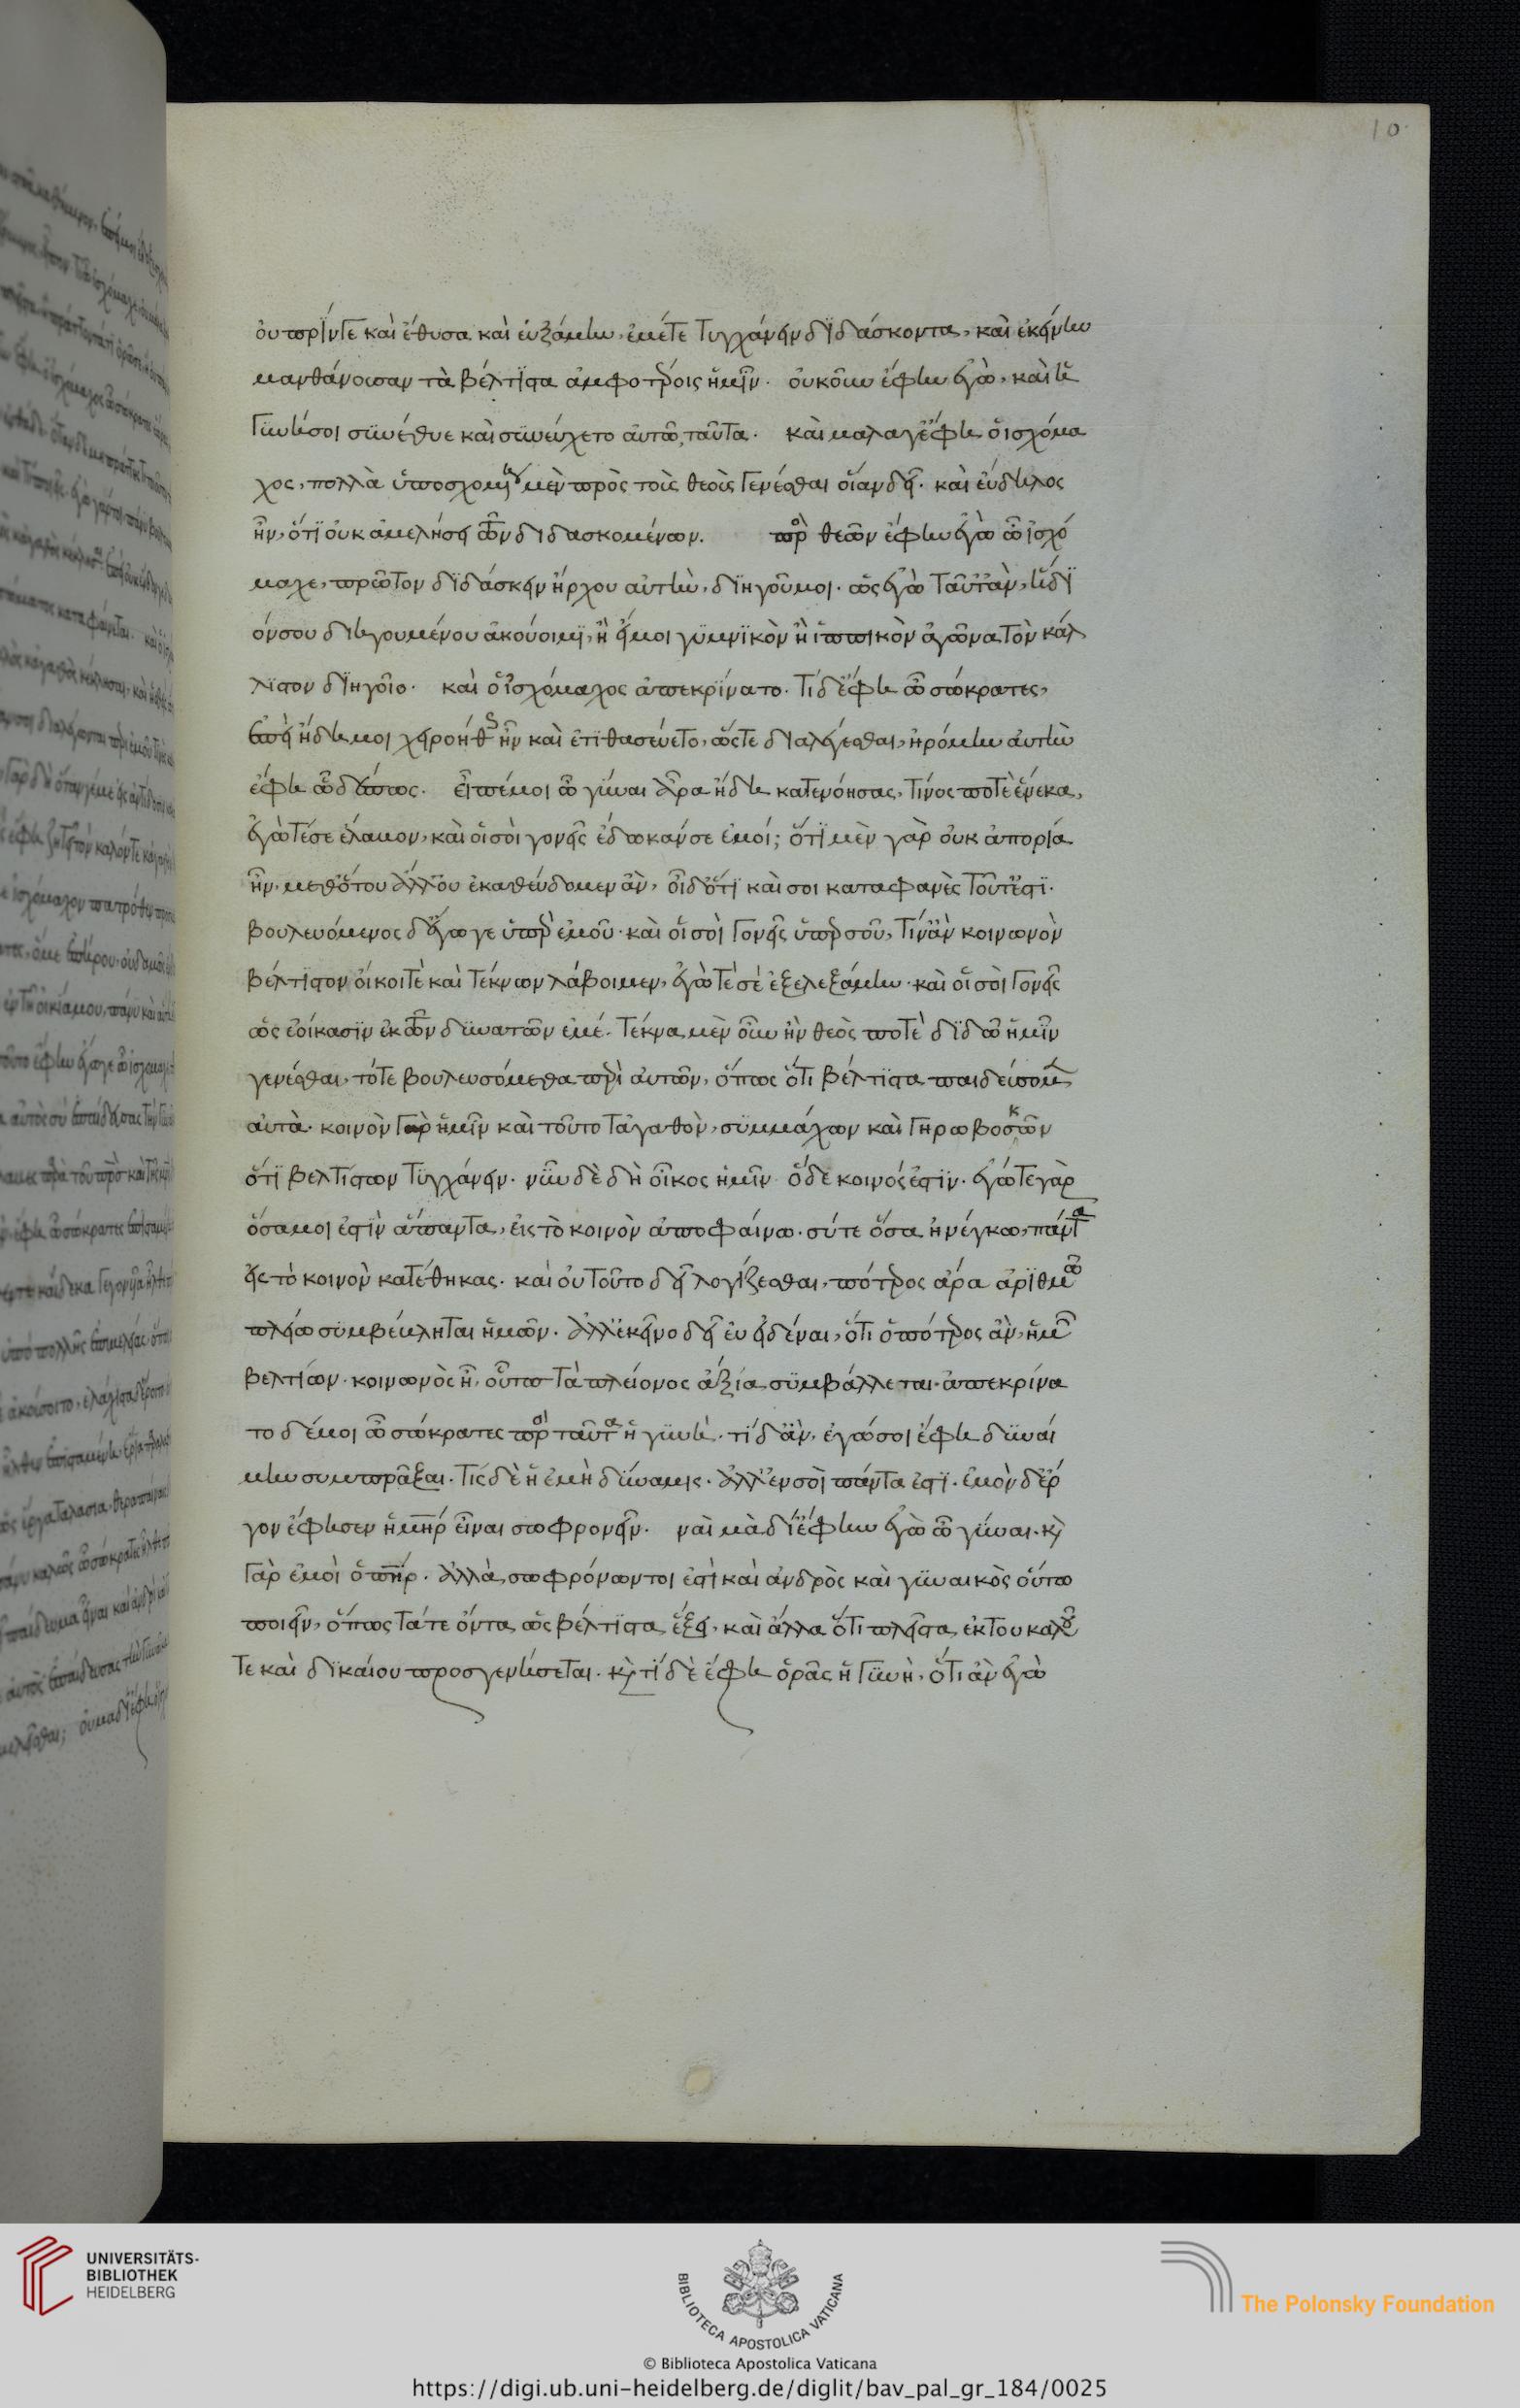 10
οὐ πρίν τε καὶ ἔθυσα καὶ εὐξάμην, ἐμέ τε τυγχάνειν διδάσκοντα, καὶ ἐκείνην
μανθάνουσαν τὰ βέλτιστα ἀμφοτέροις ἡμῖν. οὐκοῦν ἔφην ἐγὼ, καὶ ἡ
γυνή σοι συνέθυε καὶ συνεύχετο αὐτὰ ταῦτα. καὶ μάλα γ' ἔφη ὁ ἰσχόμα
χος, πολλὰ ὑποσχομένη μὲν πρὸς τοὺς θεοὺς γενέσθαι οἵαν δεῖ. καὶ εὔδηλος
ἦν, ὅτι οὐκ ἀμελήσει τῶν διδασκομένων. πρὸς θεῶν ἔφην ἐγὼ ὦ ἰσχό
μαχε, τί πρῶτον διδάσκειν ἤρχου αὐτὴν, διηγοῦ μοι. ὡς ἐγὼ ταῦτ' ἂν, ἥδι
όν σου διηγουμένου ἀκούοιμι, ἢ εἴ μοι γυμνικὸν ἢ ἱππικὸν ἀγῶνα τὸν κάλ
λιστον διηγοῖο. καὶ ὁ ἰσχόμαχος ἀπεκρίνατο. τί δ' ἔφη ὦ σώκρατες,
ἐπεὶ ἤδη μοι χειροήθης ἦν καὶ ἐτιθασεύετο, ὥστε διαλέγεσθαι, ἠρόμην αὐτὴν
ἔφη ὧδέ πως. εἰπέ μοι ὦ γύναι ἆρα ἤδη κατενόησας, τίνος ποτὲ ἕνεκα,
ἐγώ τέ σε ἔλαβον, καὶ οἱ σοὶ γονεῖς ἔδωκάν σε ἐμοί; ὅτι μὲν γὰρ οὐκ ἀπορία
ἦν, μεθ' ὅτου ἄλλου ἐκαθεύδομεν ἂν, οἶδ' ὅτι καὶ σοι καταφανὲς τοῦτ' ἐστί.
βουλευόμενος δ' ἔγωγε ὑπὲρ ἐμοῦ. καὶ οἱ σοὶ γονεῖς ὑπὲρ σοῦ, τίν' ἂν κοινωνὸν
βέλτιστον οἴκου τὲ καὶ τέκνων λάβοιμεν, ἐγώ τέ σέ ἐξελεξάμην. καὶ οἱ σοὶ γονεῖς
ὡς ἐοίκασιν ἐκ τῶν δυνατῶν ἐμέ. τέκνα μὲν οὖν ἢν θεὸς ποτὲ διδῶ ἡμῖν
γενέσθαι, τότε βουλευσόμεθα περὶ αὐτῶν, ὅπως ὅτι βέλτιστα παιδεύσομεν
αὐτά. κοινὸν γὰρ ἡμῖν καὶ τοῦτο τἀγαθὸν, συμμάχων καὶ γηροβοσκῶν
ὅτι βελτίστων τυγχάνειν. νῦν δὲ δὴ οἶκος ἡμῖν ὅδε κοινός ἐστιν. ἐγώ τε γὰρ
ὅσα μοι ἐστὶν ἅπαντα, εἰς τὸ κοινὸν ἀποφαίνω. σύ τε ὅσα ἠνέγκω, πάντα
εἰς τὸ κοινὸν κατέθηκας. καὶ οὐ τοῦτο δεῖ λογίζεσθαι, πότερος ἄρα ἀριθμῶ
πλείω συμβέβληται ἡμῶν. ἀλλ' ἐκεῖνο δεῖ εὖ εἰδέναι, ὅτι ὁπότερος ἂν, ἡμῶν
βελτίων κοινωνὸς ᾖ, οὗτος τὰ πλείονος ἄξια συμβάλλεται. ἀπεκρίνα
το δέ μοι ὦ σώκρατες πρὸς ταῦτα ἡ γυνή. τί δ' ἂν, ἐγώ σοι ἔφη δυναί
μην συμπρᾶξαι. τίς δὲ ἡ ἐμὴ δύναμις. ἀλλ' ἐν σοὶ πάντα ἐστί. ἐμὸν δ' ἔρ
γον ἔφησεν ἡ μήτηρ εἶναι σωφρονεῖν. ναὶ μὰ δί' ἔφην ἐγὼ ὦ γύναι. καὶ
γὰρ ἐμοὶ ὁ πατήρ. ἀλλὰ σωφρόνων τοι ἐστὶ καὶ ἀνδρὸς καὶ γυναικὸς οὕτω
ποιεῖν, ὅπως τά τε ὄντα ὡς βέλτιστα ἕξει, καὶ ἄλλα ὅτι πλεῖστα ἐκ τοῦ καλοῦ
τε καὶ δικαίου προσγενήσεται. καὶ τί δὲ ἔφη ὁρᾷς ἡ γυνὴ, ὅτι ἂν ἐγὼ
UNIVERSITÄTS-
BIBLIOTHEK
HEIDELBERG
BIBLIOTECA APOSTOLICA VATICANA
The Polonsky Foundation
© Biblioteca Apostolica Vaticana
https://digi.ub.uni-heidelberg.de/diglit/bav_pal_gr_184/0025